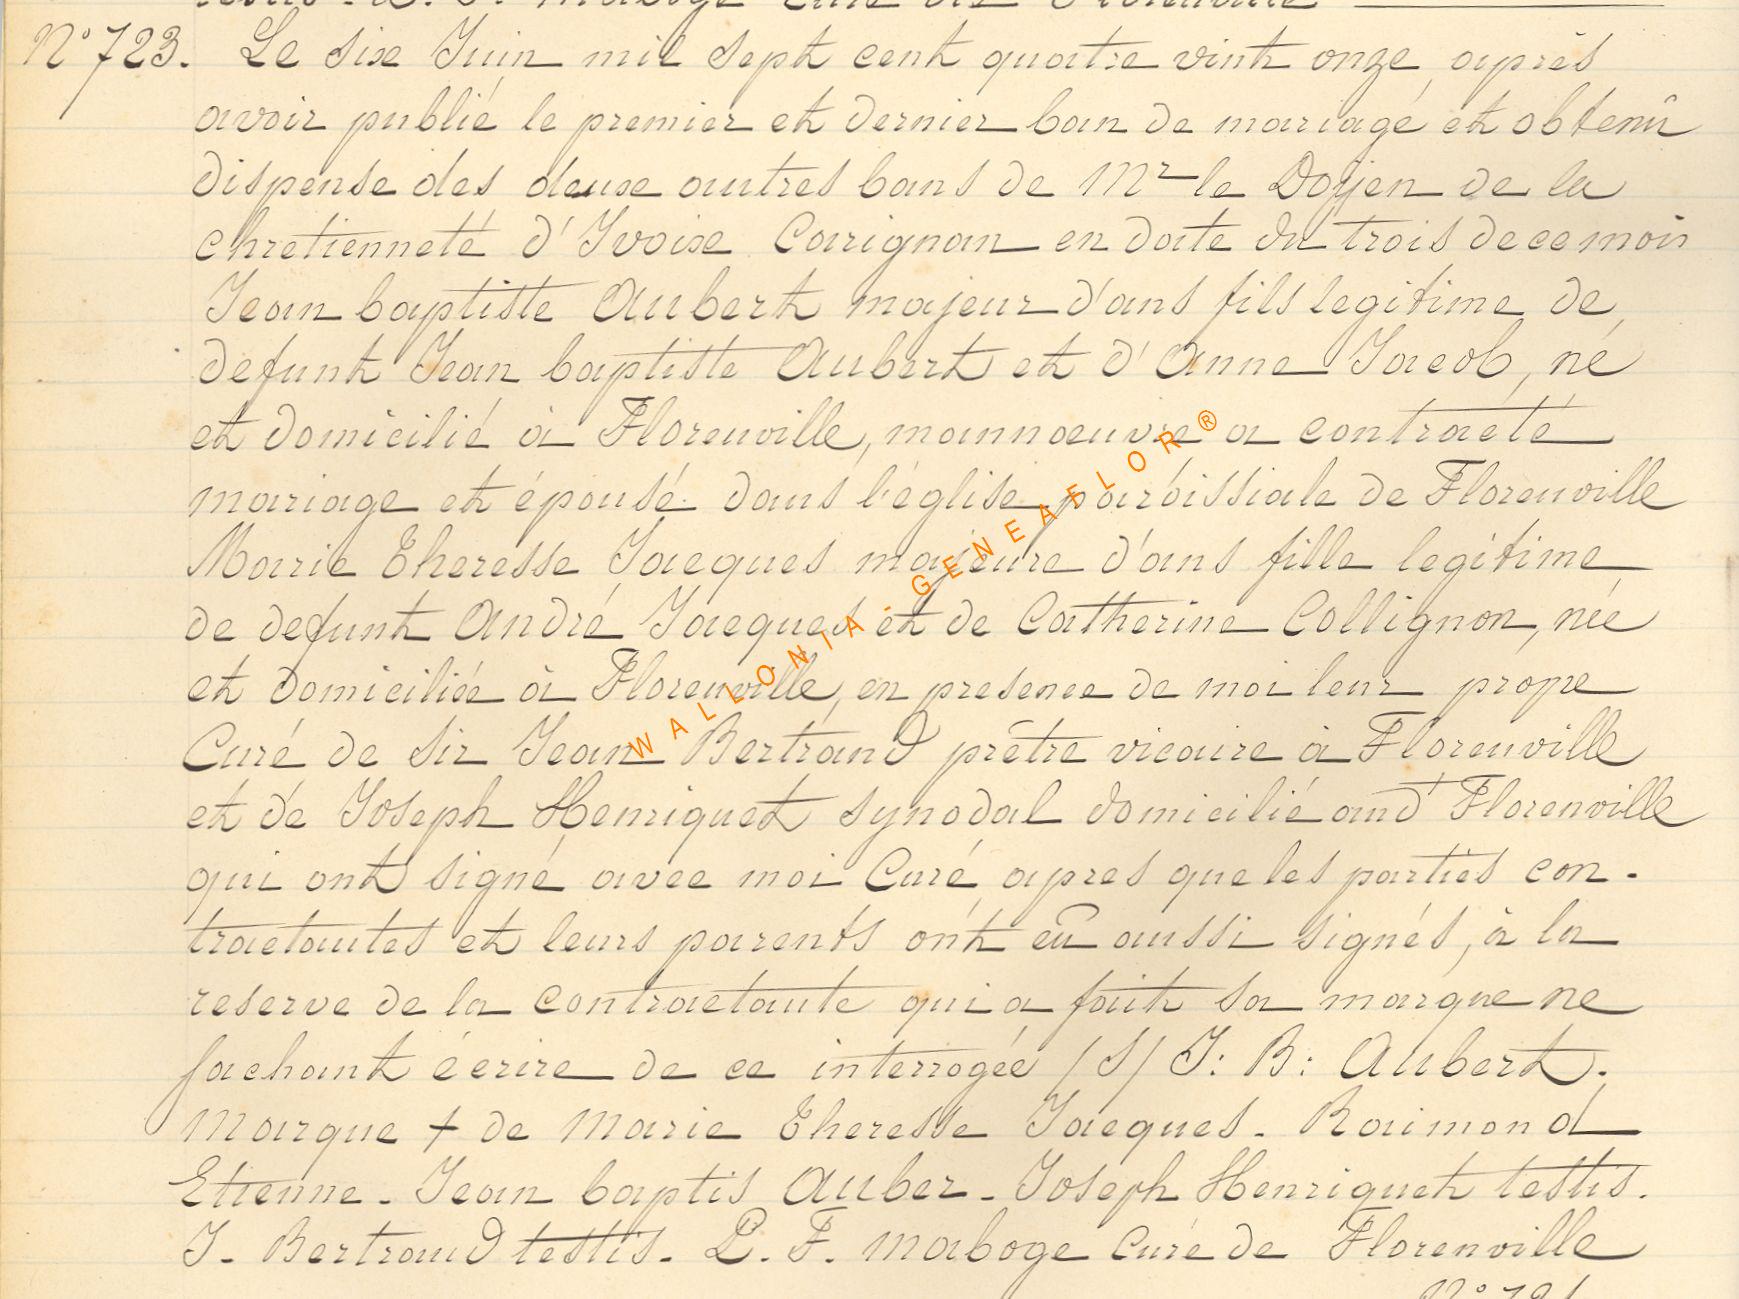 N° 723. Le six Juin mil sept cent quatre vint onze, après
avoir publié le premier et dernier ban de mariage et obtenû
dispense des deuxe autres bans de Mr le Doÿen de la
chretienneté d'Ivoixe Carignan en date du trois de ce mois
Jean baptiste Aubert majeur d'ans fils legitime de
defunt Jean baptiste Aubert et d'Anne Jacob, né
et domicilié à Florenville, mannoeuvre a contracté
mariage et épousé dans l'église paroissiale de Florenville
Marie Theresse Jacques majeure d'ans fille legitime
de defunt André Jacques et de Catherine Collignon, née
et domiciliée à Florenville, en presence de moi leur propre
Curé de sir Jean Bertrand prêtre vicaire à Florenville
et de Joseph Henriquet synodal domicilié aud Florenville
qui ont signé avec moi Curé apres que les parties con-
tractantes et leurs parents ont eû aussi signés, à la
reserve de la contractante qui a fait sa marque ne
sachant écrire de ce interrogée /S/ J: B: Aubert.
Marque + de Marie Theresse Jacques - Raimond
Etienne - Jean baptis Auber - Joseph Henriquet testis.
J. Bertrand testis - P. F. Maboge Curé de Florenville
WALLONIA - GENEAFLOR ®